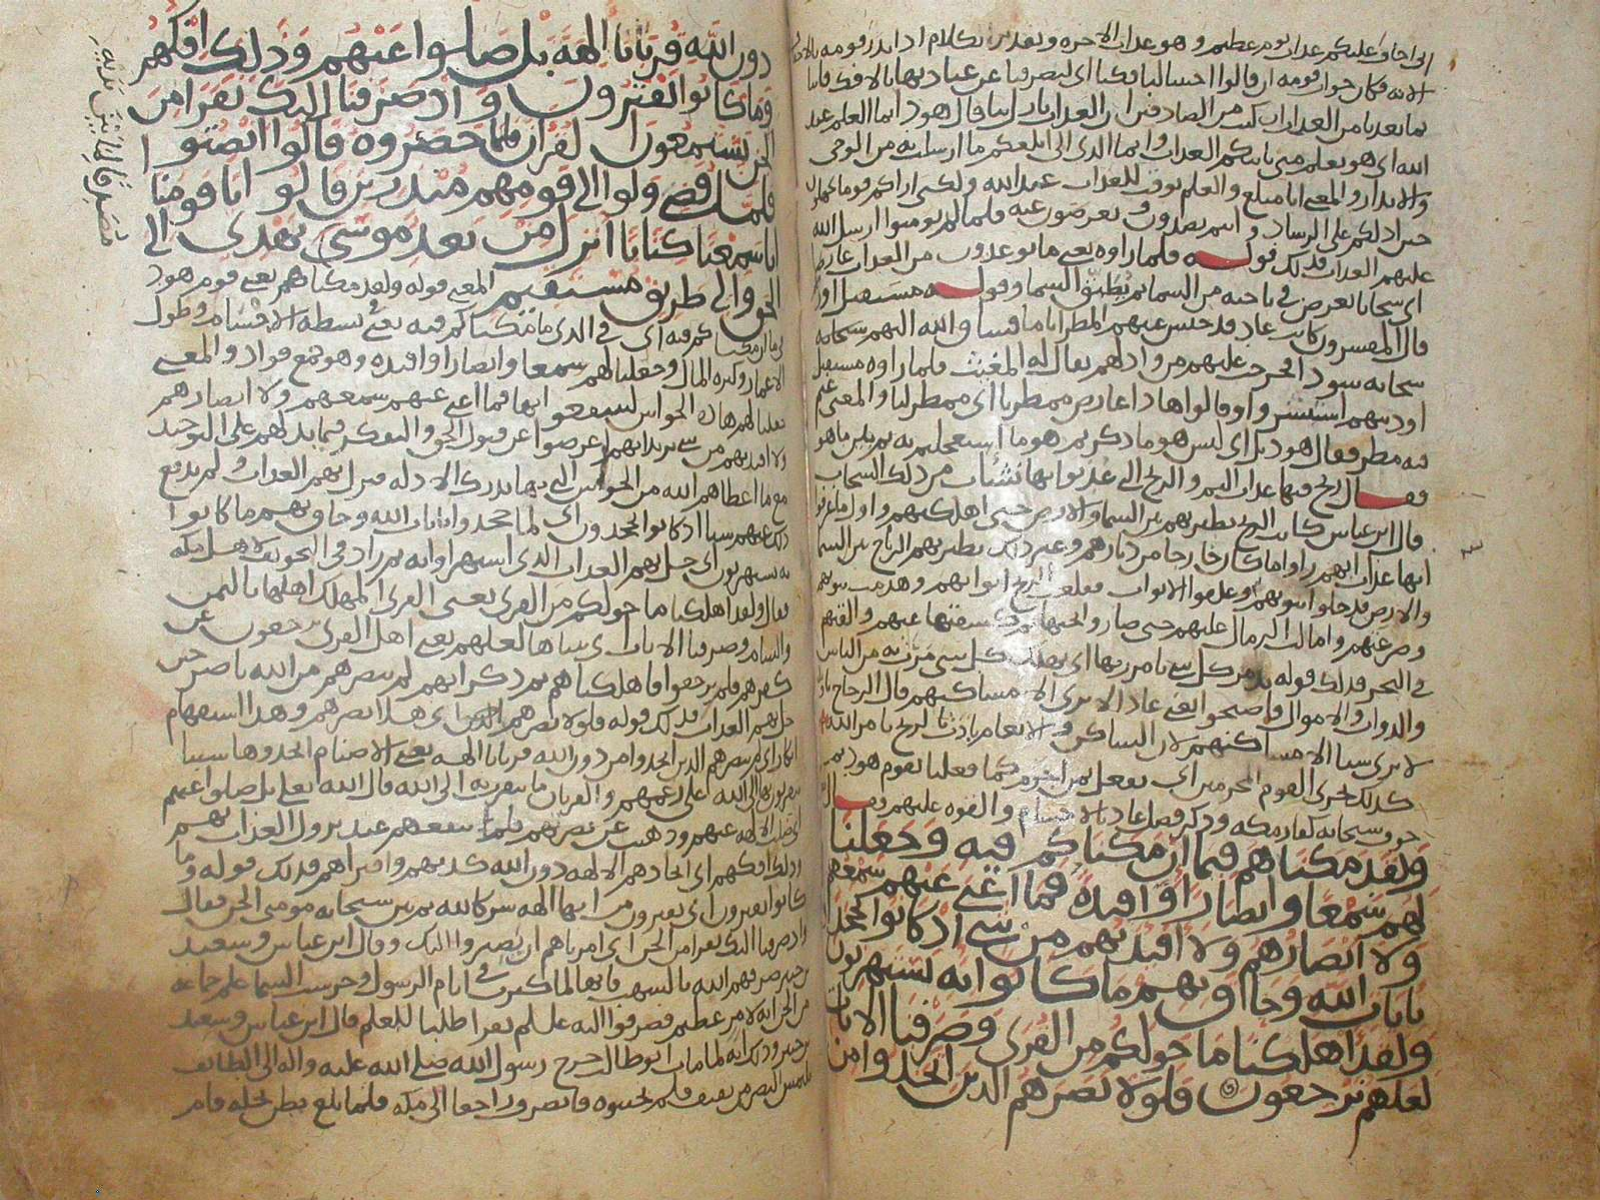 انى اخاف عليكم عذاب يوم عظيم وهو عذاب الاخره
الايه فكان جواب قومه ان قالوا اجئتنا لتافكنا اى لتصرفنا عن عبادتها بالافك فاتنا
بما تعدنا من العذاب ان كنت من الصادقين ان العذاب نازل بنا قال هود انما العلم عند
الله اى هو يعلم متى ياتيكم العذاب وانما الذى الى ابلغكم ما ارسلت به من الوحى
والانذار والمعنى انا مبلغ والعلم بوقت العذاب عند الله ولكنى اراكم قوما تجهلون
حين ادلكم على الرشاد وانتم تصدون وتعرضون عنه فلما لم يومنوا ارسل الله
عليهم العذاب فذلك قوله فلما راوه يعنى ما يوعدون من العذاب عارضا
اى سحابا يعرض فى ناحيه من السما ثم يطبق السما وقوله مستقبل اود
قال المفسرون كانت عاد قد حبس عنهم المطر اياما فساق الله اليهم سحابه
سحابه سودا فخرجت عليهم من واد لهم يقال له المغيث فلما راوه مستقبل
اوديتهم استبشروا وقالوا هذا عارض ممطرنا اى ممطر لنا والمعنى غيم
فيه مطر فقال هود بل اى ليس هو ما ذكرتم هو ما استعجلتم به ثم بين ما هو
فقال ريح فيها عذاب اليم والريح التى عذبوا بها نشات من ذلك السحاب
قال ابن عباس كانت الريح تطير بهم بين السما والارض حتى اهلكتهم
انها عذاب انهم راوا ما كان خارجا من ديارهم تطير بهم الرياح بين السما
والارض فدخلوا بيوتهم وغلقوا الابواب فقلعت الريح ابوابهم وهدمت بيوتهم
وصرعتهم وامالت الرمال عليهم حتى صاروا تحتها ثم كشفتها عنهم والقتهم
فى البحر فذلك قوله تدمر كل شى بامر ربها اى تهلك كل شى مرت به من الناس
والدواب والاموال فاصبحوا يعنى عادا لا يرى الا مساكنهم قال الزجاج
لا يرى شيا الا مساكنهم لان الساكن والانعام بادت بالريح بامر الله
كذلك نجزى القوم المجرمين اى نفعل بمن اجرم كما فعلنا بقوم هود ثم
خوف سبحانه كفار مكه وذكر فضل عاد بالاجسام والقوه عليهم وقال
ولقد مكناهم فيما ان مكناكم فيه وجعلنا
لهم سمعا وابصارا وافيده فما اغنى عنهم سمعهم
ولا ابصارهم ولا افيدتهم من شى اذ كانوا يجحدون
بايات الله وحاق بهم ما كانوا به يستهزون
ولقد اهلكنا ما حولكم من القرى وصرفنا الايات
لعلهم يرجعون فلولا نصرهم الذين اتخذوا من
دون الله قربانا الهة بل ضلوا عنهم وذلك افكهم
وما كانوا يفترون واذ صرفنا اليك نفرا من
الجن يستمعون القران فلما حضروه قالوا انصتوا
فلما قضى ولوا الى قومهم منذرين قالوا يا قومنا
انا سمعنا كتابا انزل من بعد موسى يهدى الى
الحق والى طريق مستقيم المعنى قوله ولقد مكناهم يعنى قوم هود
فيما ان مكناكم فيه اى فى الذى ما مكناكم فيه يعنى بسطه الاجسام وطول
الاعمار وكثره المال وجعلنا لهم سمعا وابصارا وافيده وهو جمع فواد والمعنى
جعلنا لهم هذه الحواس لينتفعوا بها فما اغنى عنهم سمعهم ولا ابصارهم
ولا افيدتهم من شى يريد انهم اعرضوا عن قبول الحق والتفكر فيما يدلهم على التوحيد
مع ما اعطاهم الله من الحواس التى بها تدرك الادله فنزل بهم العذاب ولم يدفع
ذلك عنهم شيا اذ كانوا يجحدون اى لما جحدوا بايات الله وحاق بهم ما كانوا
به يستهزون اى حل بهم العذاب الذى استهزاوا به ثم زاد فى التخويف لاهل مكه
فقال ولقد اهلكنا ما حولكم من القرى يعنى القرى المهلك اهلها باليمن
والشام وصرفنا الايات اى بيناها لعلهم يعنى اهل القرى يرجعون عن
كفرهم فلم يرجعوا فاهلكناهم ثم ذكر انهم لم ينصرهم من الله ناصر حين
حل بهم العذاب فذلك قوله فلولا نصرهم الذين اى هلا نصرهم وهذا استفهام
انكار اى لم ينصرهم الذين اتخذوا من دون الله قربانا الهه يعنى الاصنام اتخذوها
يتقربون بها الى الله على زعمهم والقربان ما يتقرب به الى الله قال الله تعالى بل ضلوا عنهم
اى ضلت الالهه عنهم وذهبت عن نصرتهم فلم تنفعهم عند نزول العذاب بهم
وذلك افكهم اى اتخاذهم الالهه دون الله كذبهم وافتراهم فذلك قوله وما
كانوا يفترون اى يفترون من انها الهه شركا لله ثم بين سبحانه مومنى الجن فقال
واذ صرفنا اليك نفرا من الجن اى امرناهم ان يصيروا اليك وقال ابن عباس وسعيد
بن جبير صرفهم الله بالشهب فانها لما كثرت فى ايام الرسول وحرست السما علم جماعه
من الجن انه لامر عظيم فصرفوا اليه نفرا طلبا للعلم قال ابن عباس وسعيد
بن جبير وذلك انه لما مات ابو طالب خرج رسول الله صلى الله عليه واله الى الطائف
يلتمس النصر من ثقيف فلم يجيبوه فانصرف راجعا الى مكه فلما بلغ بطن نخله قام